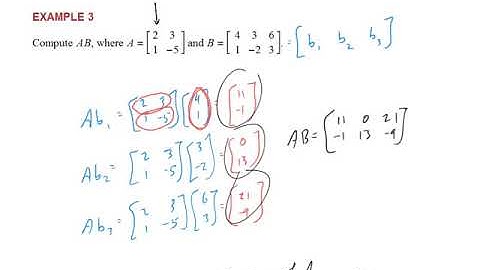 EXAMPLE 3
Compute AB, where A = [2 3; 1 -5] and B = [4 3 6; 1 -2 3]. = [b₁ b₂ b₃]
Ab₁ = [2 3; 1 -5] [4; 1] = [11; -1]
Ab₂ = [2 3; 1 -5] [3; -2] = [0; 13]
AB = [11 0 21; -1 13 -9]
Ab₃ = [2 3; 1 -5] [6; 3] = [21; -9]